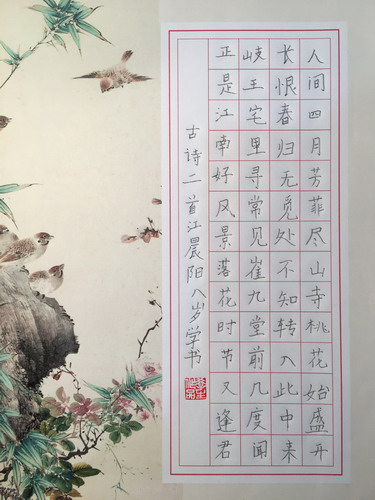 人间四月芳菲尽山寺桃花始盛开
长恨春归无觅处不知转入此中来
岐王宅里寻常见崔九堂前几度闻
正是江南好风景落花时节又逢君
古诗二首江晨阳八岁学书